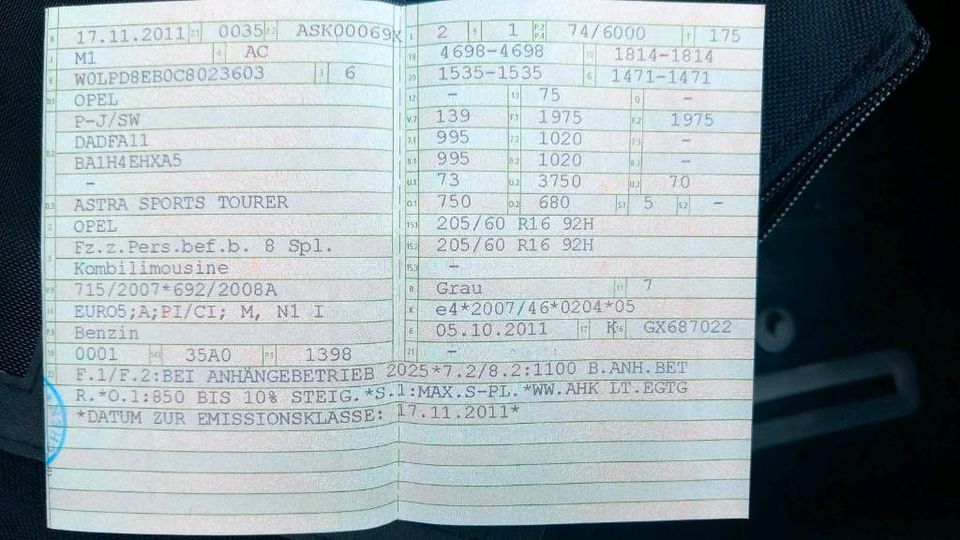 B 17.11.2011 2.1 0035 2.2 ASK00069X
J M1 4 AC
E W0LPD8EB0C8023603 3 6
D.1 OPEL
P-J/SW
DADFA11
D.2 BA1H4EHXA5
-
D.3 ASTRA SPORTS TOURER
2 OPEL
Fz.z.Pers.bef.b. 8 Spl.
5 Kombilimousine
V.9 715/2007*692/2008A
14 EURO5;A;PI/CI; M, N1 I
P.3 Benzin
10 0001 14.1 35A0 P.1 1398
L 2 9 1 P.2 P.4 74/6000 T 175
18 4698-4698 19 1814-1814
20 1535-1535 G 1471-1471
12 - 13 75 Q -
V.7 139 F.1 1975 F.2 1975
7.1 995 7.2 1020 7.3 -
8.1 995 8.2 1020 8.3 -
U.1 73 U.2 3750 U.3 70
O.1 750 O.2 680 S.1 5 S.2 -
15.1 205/60 R16 92H
15.2 205/60 R16 92H
15.3 -
R Grau 11 7
K e4*2007/46*0204*05
6 05.10.2011 17 K 16 GX687022
21 -
22 F.1/F.2:BEI ANHÄNGEBETRIEB 2025*7.2/8.2:1100 B.ANH.BET
R.*O.1:850 BIS 10% STEIG.*S.1:MAX.S-PL.*WW.AHK LT.EGTG
*DATUM ZUR EMISSIONSKLASSE: 17.11.2011*